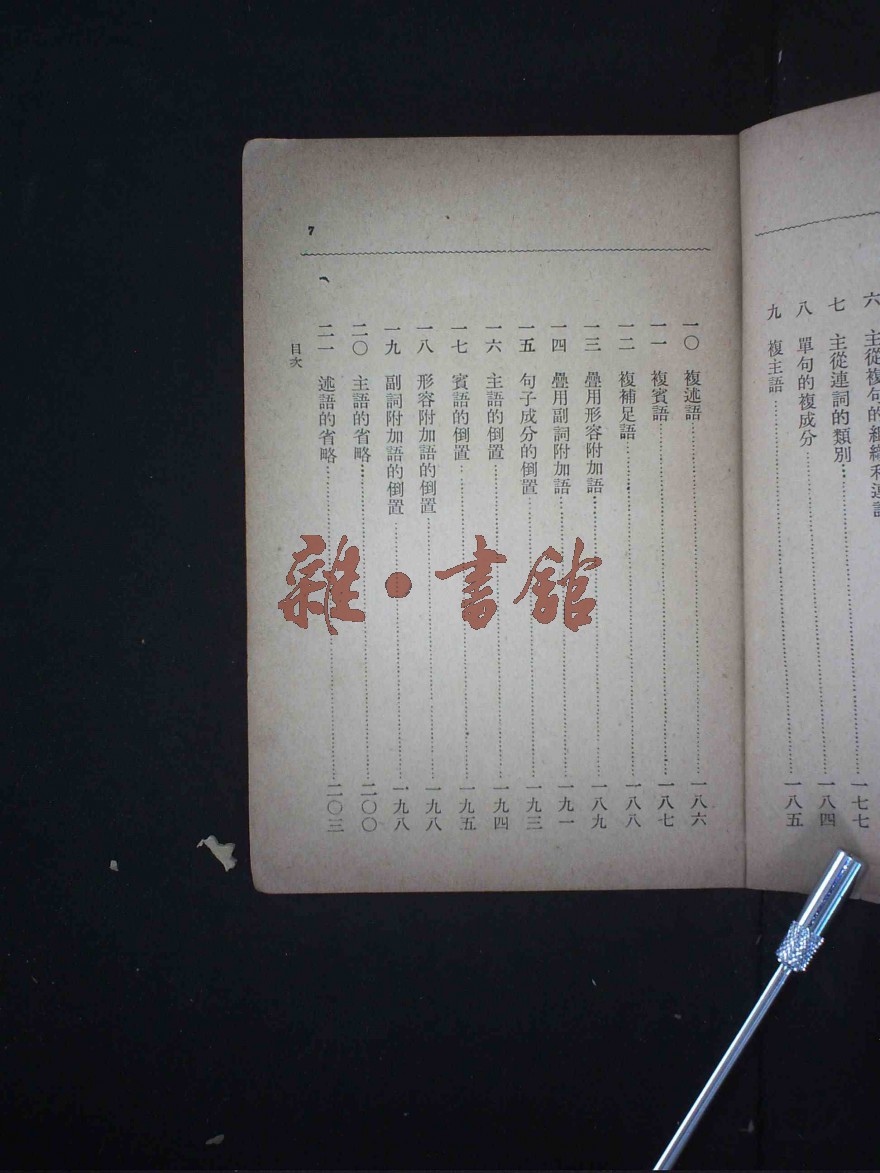 六 主從複句的組織和連詞
七 主從連詞的類別………一七七
八 單句的複成分………一八四
九 複主語………一八五
7
一〇 複述語………一八六
一一 複賓語………一八七
一二 複補足語………一八八
一三 疊用形容附加語………一八九
一四 疊用副詞附加語………一九一
一五 句子成分的倒置………一九三
一六 主語的倒置………一九四
一七 賓語的倒置………一九五
一八 形容附加語的倒置………一九八
一九 副詞附加語的倒置………一九八
二〇 主語的省略………二〇〇
二一 述語的省略………二〇三
目次
雜·書館